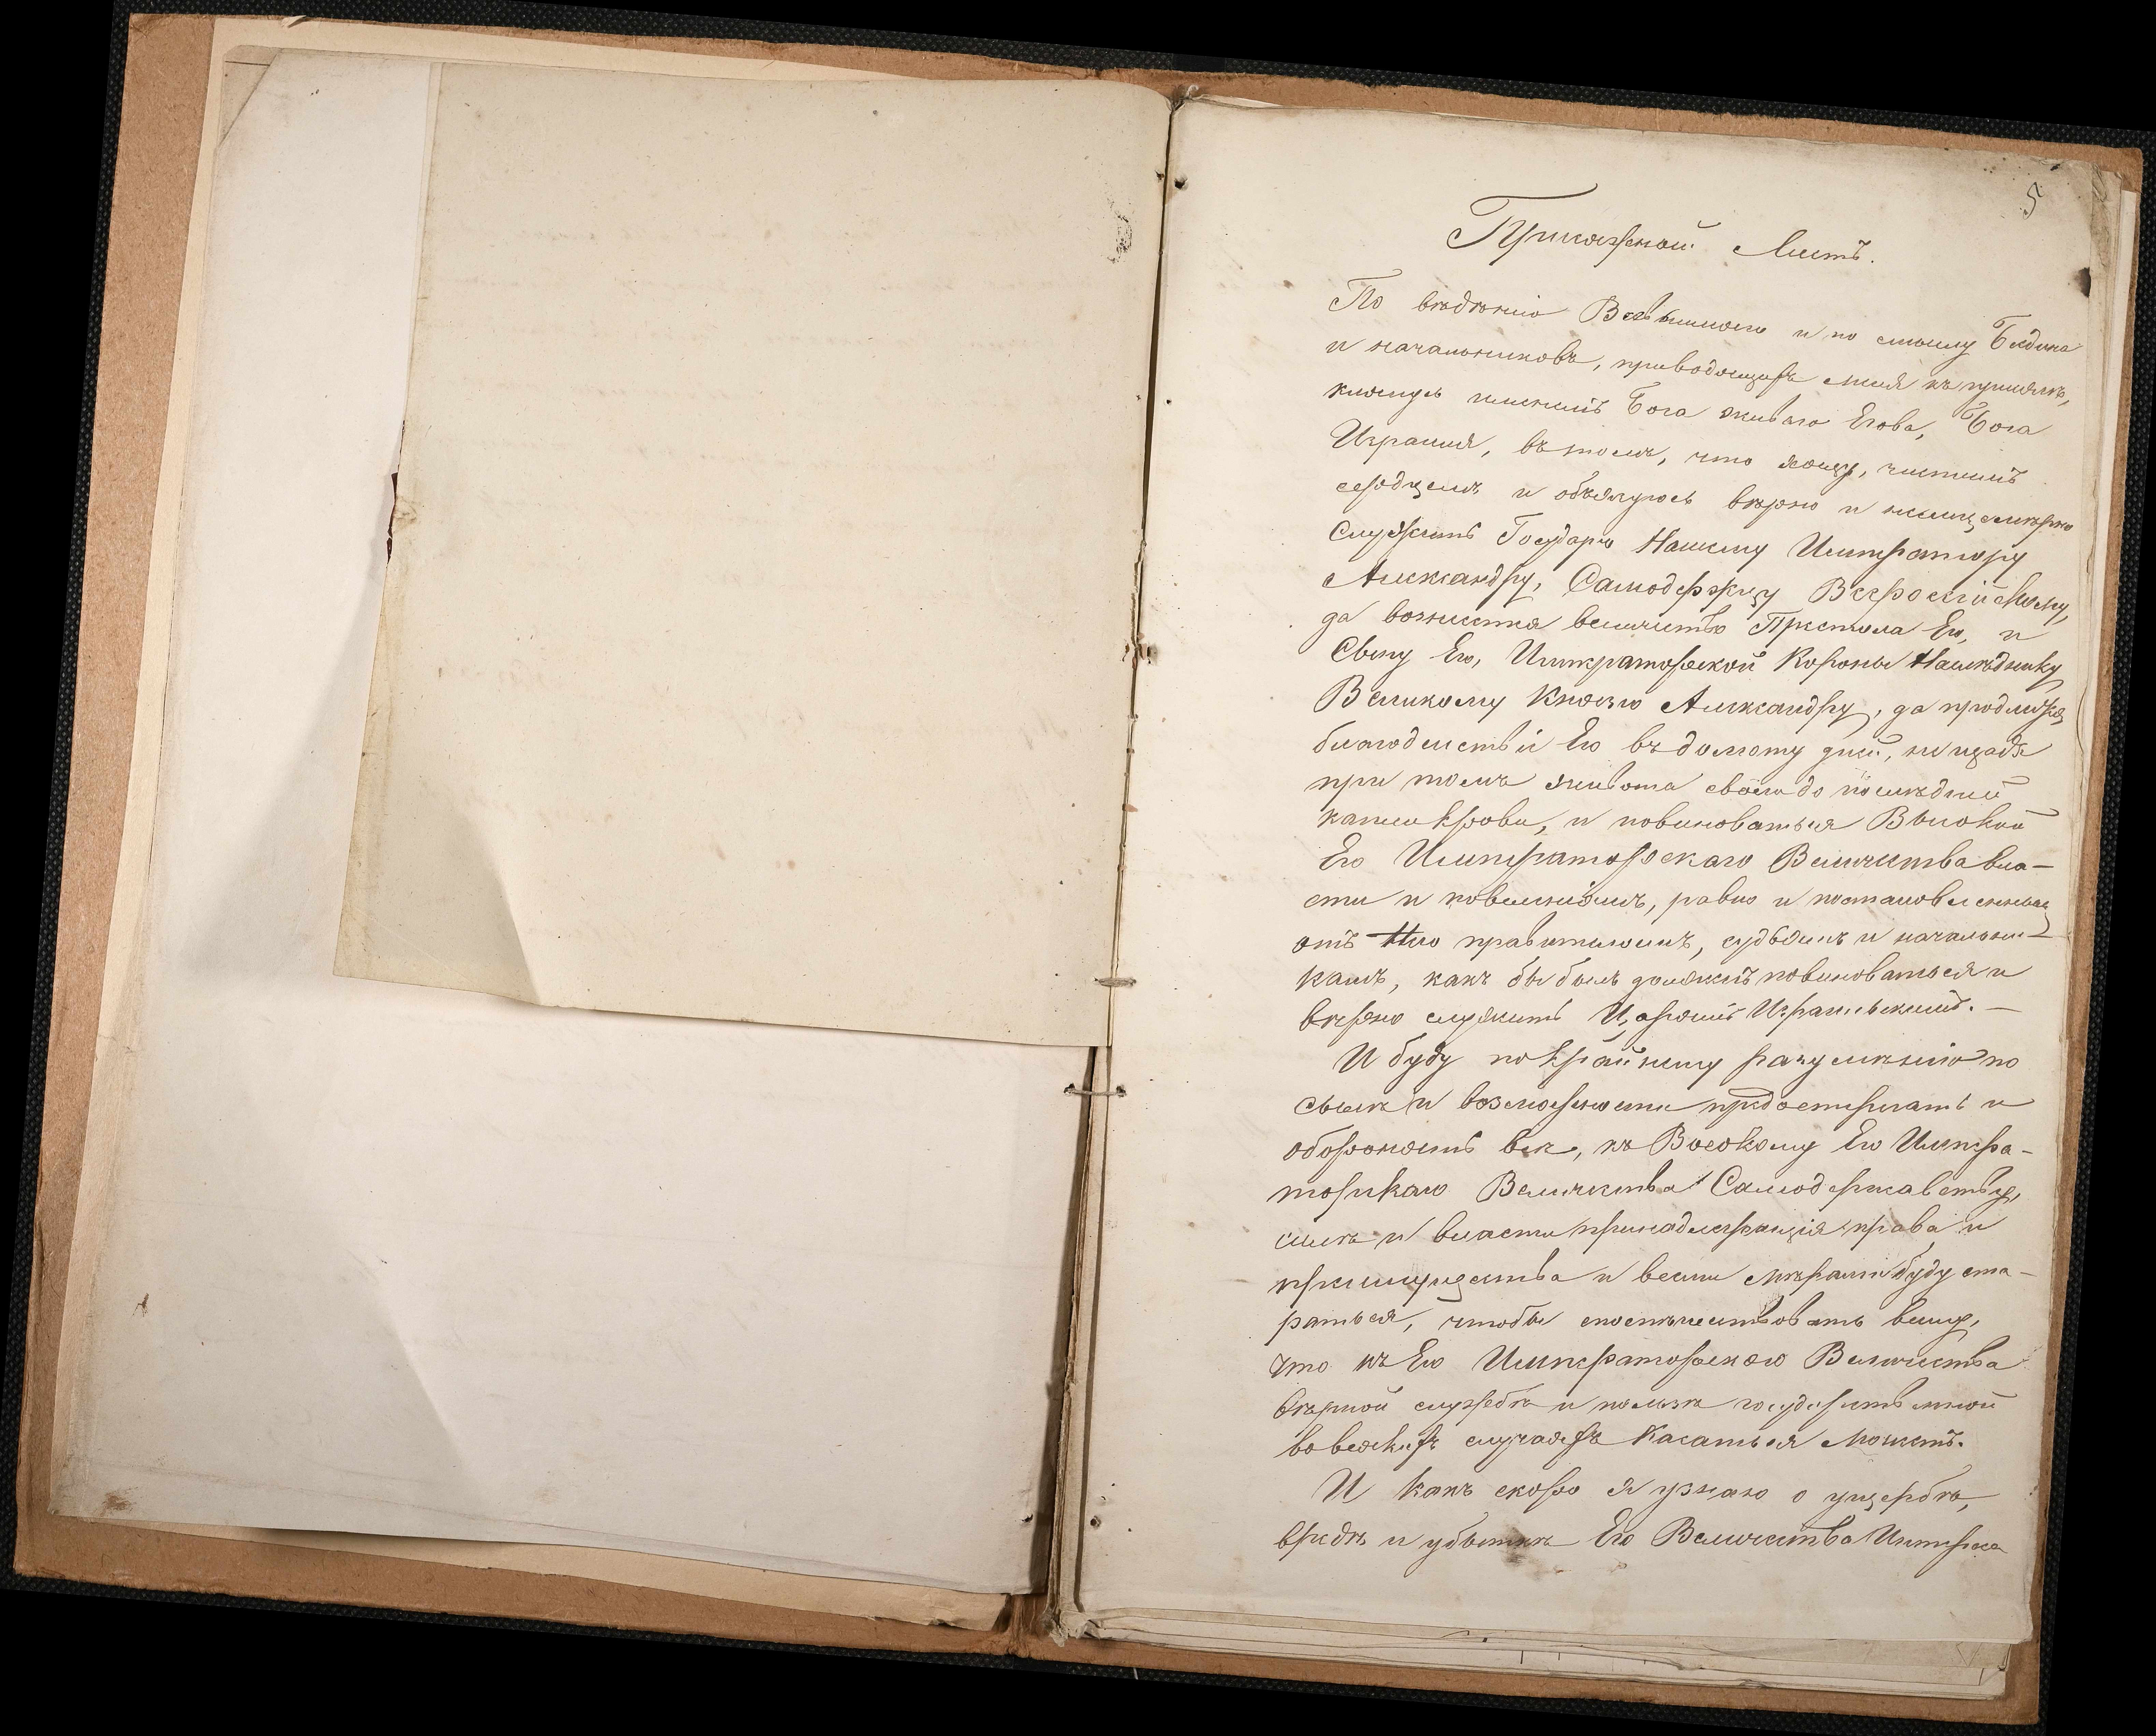 5
Присяжной Листъ.
По вѣдѣнію Всевышняго и по смыслу Бедина
и начальниковъ, приводящихъ меня къ присягѣ,
клянусь именемъ Бога живаго Егова, Бога
Израиля, въ томъ, что хощу, чистымъ
сердцемъ и обѣщуюсь вѣрно и нелицемѣрно
Служить Государю Нашему Императору
Александру, Самодержцу Всероссійскому,
да вознесется величество Престола Его, и
Сыну Его, Императорской Короны Наслѣднику
Великому Князю Александру, да продлится
благоденствіе Его въ долготу дней, не щадя
при томъ живота своего до послѣдней
капли крови, и повиноваться Высокой
Его Императорскаго Величества вла-
сти и повелѣніямъ, равно и постановленнымъ
отъ Него правителямъ, судьямъ и начальни-
камъ, какъ бы былъ долженъ повиноваться и
вѣрно служить Царямъ Израильскимъ. —
И буду по крайнему разумѣнію по
силѣ и возможности предостерегать и
оборонять всѣ, къ Высокому Его Импера-
торскаго Величества Самодержавству,
силѣ и власти принадлежащія права и
преимущества и всеми мѣрами буду ста-
раться, чтобы споспѣшествовать всему,
что къ Его Императорскаго Величества
вѣрной службѣ и пользѣ государственной
во всякихъ случаяхъ касаться можетъ.
И какъ скоро я узнаю о ущербѣ,
вредѣ и убыткѣ Его Величества Интереса